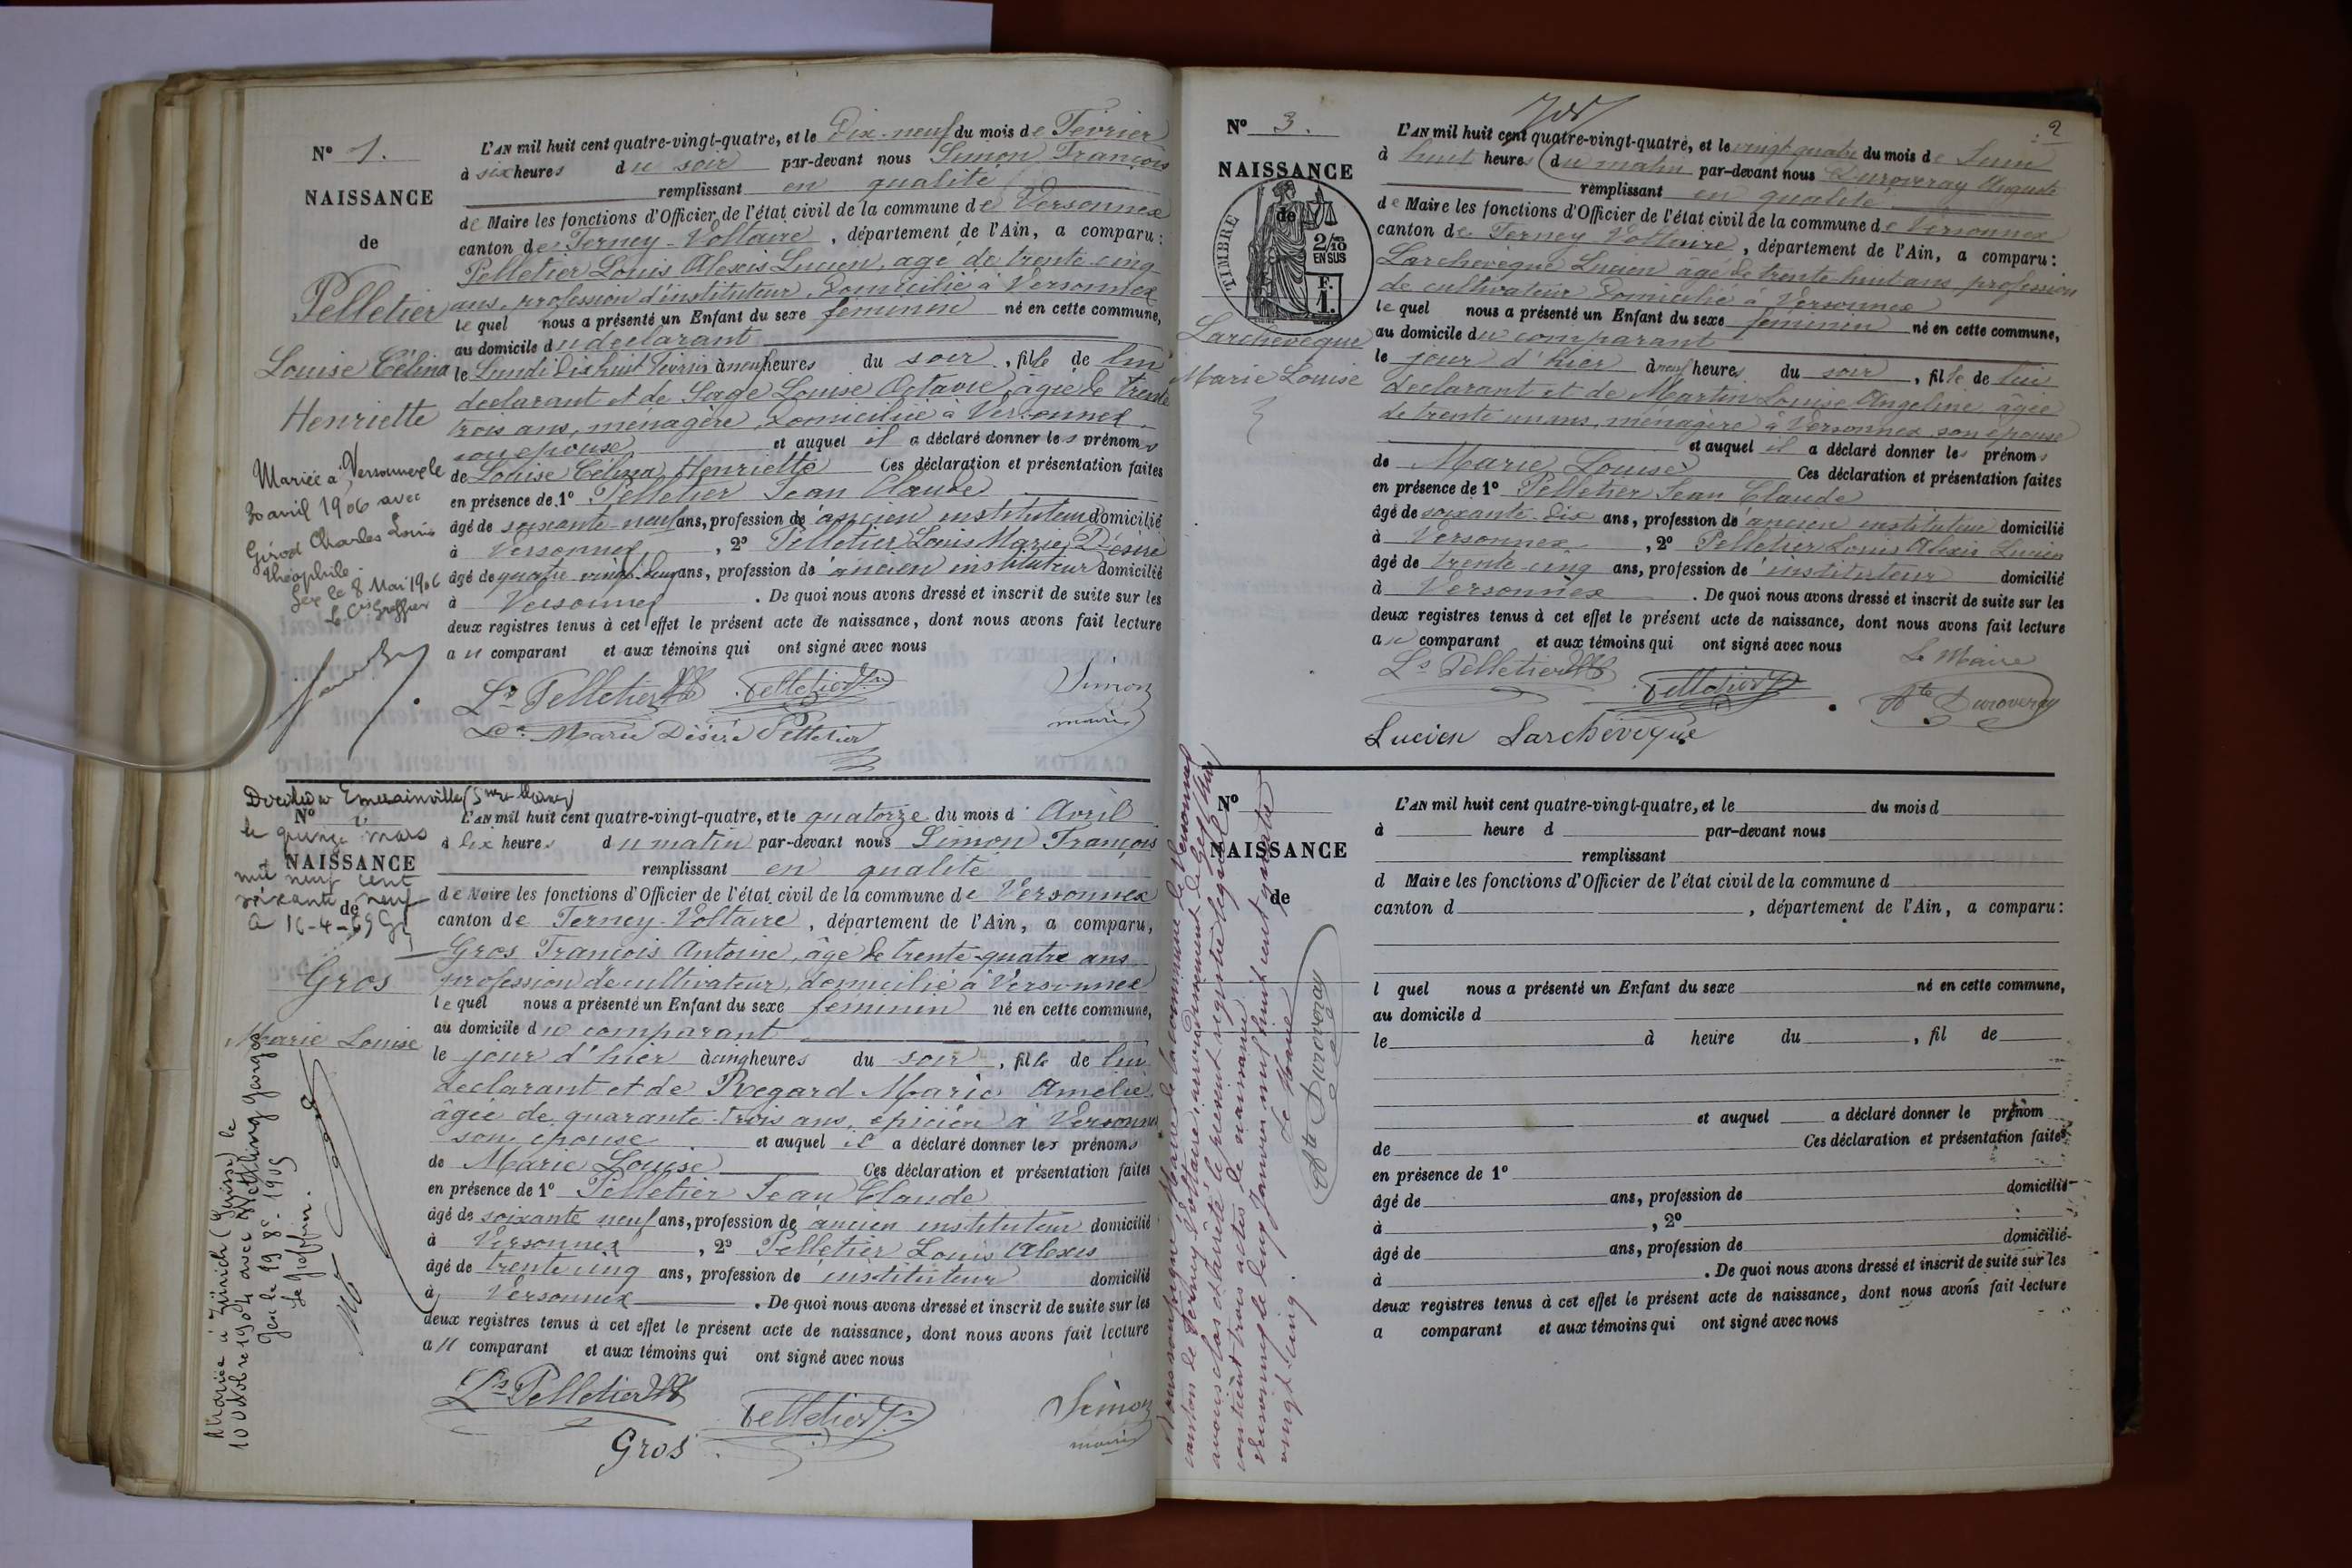 N° 1.
NAISSANCE
de
Pelletier
Louise Célina
Henriette
Mariée à Versonnex le
30 avril 1906 avec
Girod Charles Louis
Théophile.
Gex le 8 Mai 1906
Le Cis Greffier
L'AN mil huit cent quatre-vingt-quatre, et le Dix-neuf du mois de Février
à six heures du soir par-devant nous Simon François
remplissant en qualité
de Maire les fonctions d'Officier de l'état civil de la commune de Versonnex
canton de Ferney-Voltaire, département de l'Ain, a comparu :
Pelletier Louis Alexis Lucien, agé de trente-cinq
ans, profession d'instituteur, domicilié à Versonnex
lequel nous a présenté un Enfant du sexe féminin né en cette commune,
au domicile du déclarant
le Lundi dix huit Février à neuf heures du soir, fille de lui
déclarant et de Sage Louise Octavie agée de trente
trois ans, ménagère, domiciliée à Versonnex,
son épouse et auquel il a déclaré donner les prénoms
de Louise Célina Henriette Ces déclaration et présentation faites
en présence de 1° Pelletier Jean Claude
âgé de soixante-neuf ans, profession de ancien instituteur domicilié
à Versonnex, 2° Pelletier Louis Marie Désiré
âgé de quatre vingt deux ans, profession de ancien instituteur domicilié
à Versonnex. De quoi nous avons dressé et inscrit de suite sur les
deux registres tenus à cet effet le présent acte de naissance, dont nous avons fait lecture
au comparant et aux témoins qui ont signé avec nous
Ls Pelletier Pelletier Simon
Ls Marie Désiré Pelletier maire
Décédée à Emerainville (Sne et Marne)
N°
le quinze mars
NAISSANCE
mil neuf cent
soixante neuf
de
16-4-69
Gros
Marie Louise
Mariée à Zürich (Suisse) le
10 octobre 1904 avec Georges
Gex le 19 1905
Le Greffier.
L'AN mil huit cent quatre-vingt-quatre, et le quatorze du mois d'Avril
à dix heures du matin par-devant nous Simon François
remplissant en qualité
de Maire les fonctions d'Officier de l'état civil de la commune de Versonnex
canton de Ferney-Voltaire, département de l'Ain, a comparu,
Gros François Antoine, âgé de trente-quatre ans
profession de cultivateur, domicilié à Versonnex
lequel nous a présenté un Enfant du sexe féminin né en cette commune,
au domicile du comparant
le jour d'hier à cinq heures du soir, fille de lui
déclarant et de Regard Marie Amélie
âgée de quarante-trois ans, épicière à Versonnex
son épouse et auquel il a déclaré donner les prénoms
de Marie Louise Ces déclaration et présentation faites
en présence de 1° Pelletier Jean Claude
âgé de soixante neuf ans, profession de ancien instituteur domicilié
à Versonnex, 2° Pelletier Louis Alexis
âgé de trente cinq ans, profession de instituteur domicilié
à Versonnex. De quoi nous avons dressé et inscrit de suite sur les
deux registres tenus à cet effet le présent acte de naissance, dont nous avons fait lecture
au comparant et aux témoins qui ont signé avec nous
Ls Pelletier Pelletier Simon
Gros maire
2
N° 3.
NAISSANCE
de
TIMBRE
2/10
EN SUS
F.
1.
Larchevêque
Marie Louise
L'AN mil huit cent quatre-vingt-quatre, et le vingt quatre du mois de Juin
à huit heures du matin par-devant nous Duroveray Auguste
remplissant en qualité
de Maire les fonctions d'Officier de l'état civil de la commune de Versonnex
canton de Ferney Voltaire, département de l'Ain, a comparu :
Larchevêque Lucien âgé de trente huit ans, profession
de cultivateur domicilié à Versonnex
lequel nous a présenté un Enfant du sexe féminin né en cette commune,
au domicile du comparant
le jour d'hier à neuf heures du soir, fille de lui
déclarant et de Martin Louise Angeline, âgée
de trente un ans, ménagère à Versonnex, son épouse
et auquel il a déclaré donner les prénoms
de Marie Louise Ces déclaration et présentation faites
en présence de 1° Pelletier Jean Claude
âgé de soixante-dix ans, profession de ancien instituteur domicilié
à Versonnex, 2° Pelletier Louis Alexis Lucien
âgé de trente-cinq ans, profession de instituteur domicilié
à Versonnex. De quoi nous avons dressé et inscrit de suite sur les
deux registres tenus à cet effet le présent acte de naissance, dont nous avons fait lecture
au comparant et aux témoins qui ont signé avec nous
Le Maire
Ls Pelletier Pelletier Ate Duroveray
Lucien Larchevêque
N°
NAISSANCE
de
Nous soussigné Maire de la commune de Versonnex
canton de Ferney-Voltaire, arrondissement de Gex (Ain)
avons clos et arrêté le présent registre lequel
contient trois actes de naissance
Versonnex le cinq Janvier mil huit cent quatre
vingt-cinq.
Le Maire
Ate Duroveray
L'AN mil huit cent quatre-vingt-quatre, et le du mois d
à heure d par-devant nous
remplissant
d Maire les fonctions d'Officier de l'état civil de la commune d
canton d, département de l'Ain, a comparu :
l quel nous a présenté un Enfant du sexe né en cette commune,
au domicile d
le à heure du, fil de
et auquel a déclaré donner le prénom
de Ces déclaration et présentation faites
en présence de 1°
âgé de ans, profession de domicilié
à, 2°
âgé de ans, profession de domicilié
à. De quoi nous avons dressé et inscrit de suite sur les
deux registres tenus à cet effet le présent acte de naissance, dont nous avons fait lecture
a comparant et aux témoins qui ont signé avec nous